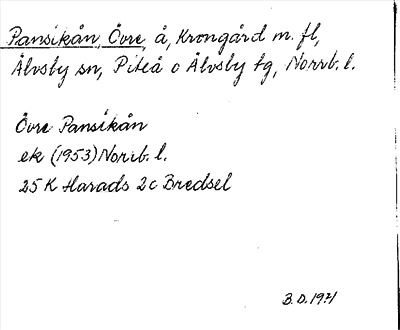 Pansikån, Övre, å, Krongård m. fl,
Älvsby sn, Piteå o Älvsby tg, Norrb. l.
Övre Pansikån
ek (1953) Norrb. l.
25 K Harads 2c Bredsel
B.D. 1971